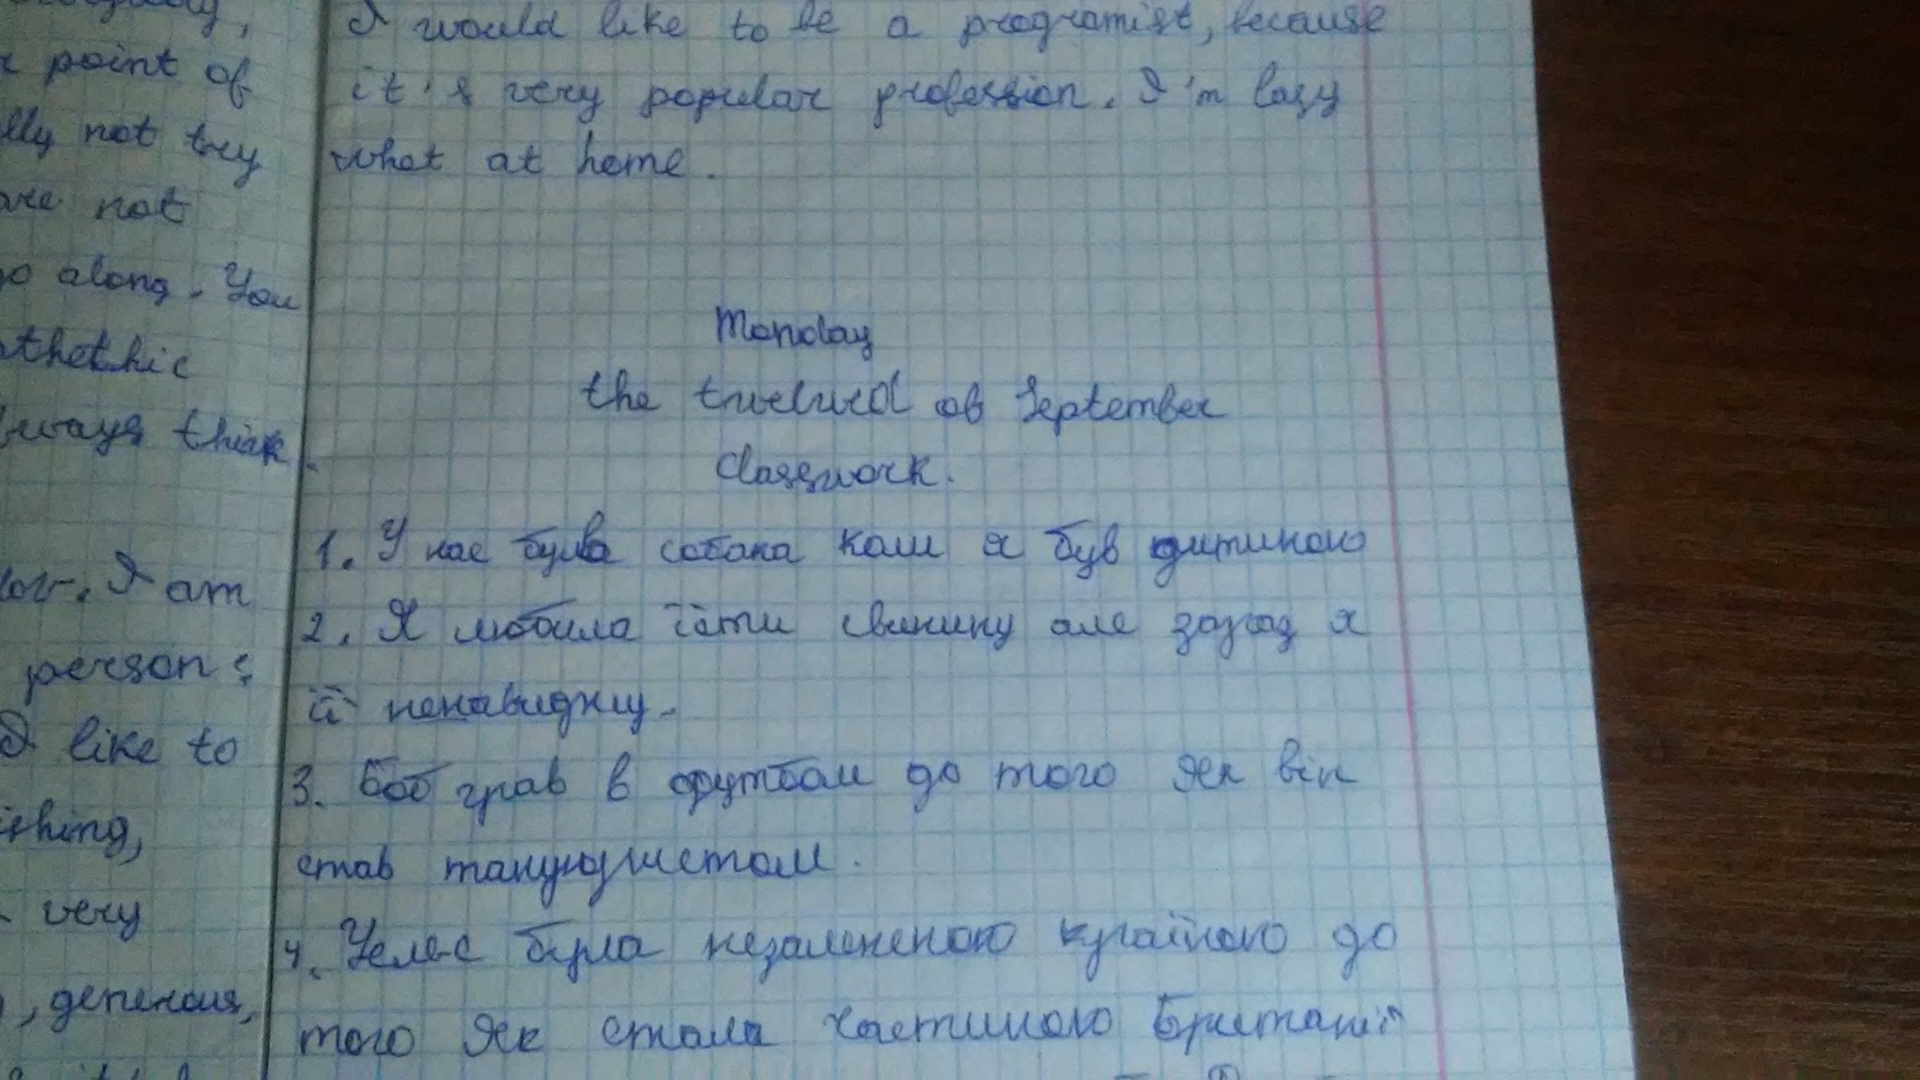 point of
not try
are not
along. You
thethic
ways think
I am
person;
I like to
shing,
very
I would like to be a programist, because
it's very popular profession. I'm lasy
what at home.
Monday
the twelwed of September
Classwork.
1. У нас була собака коли я був дитиною
2. Я любила їсти свинину але зараз я
її ненавиджу.
3. Боб грав в футбол до того як він
став
4. Уельс була незалежною країною до
того як стала частиною Британії